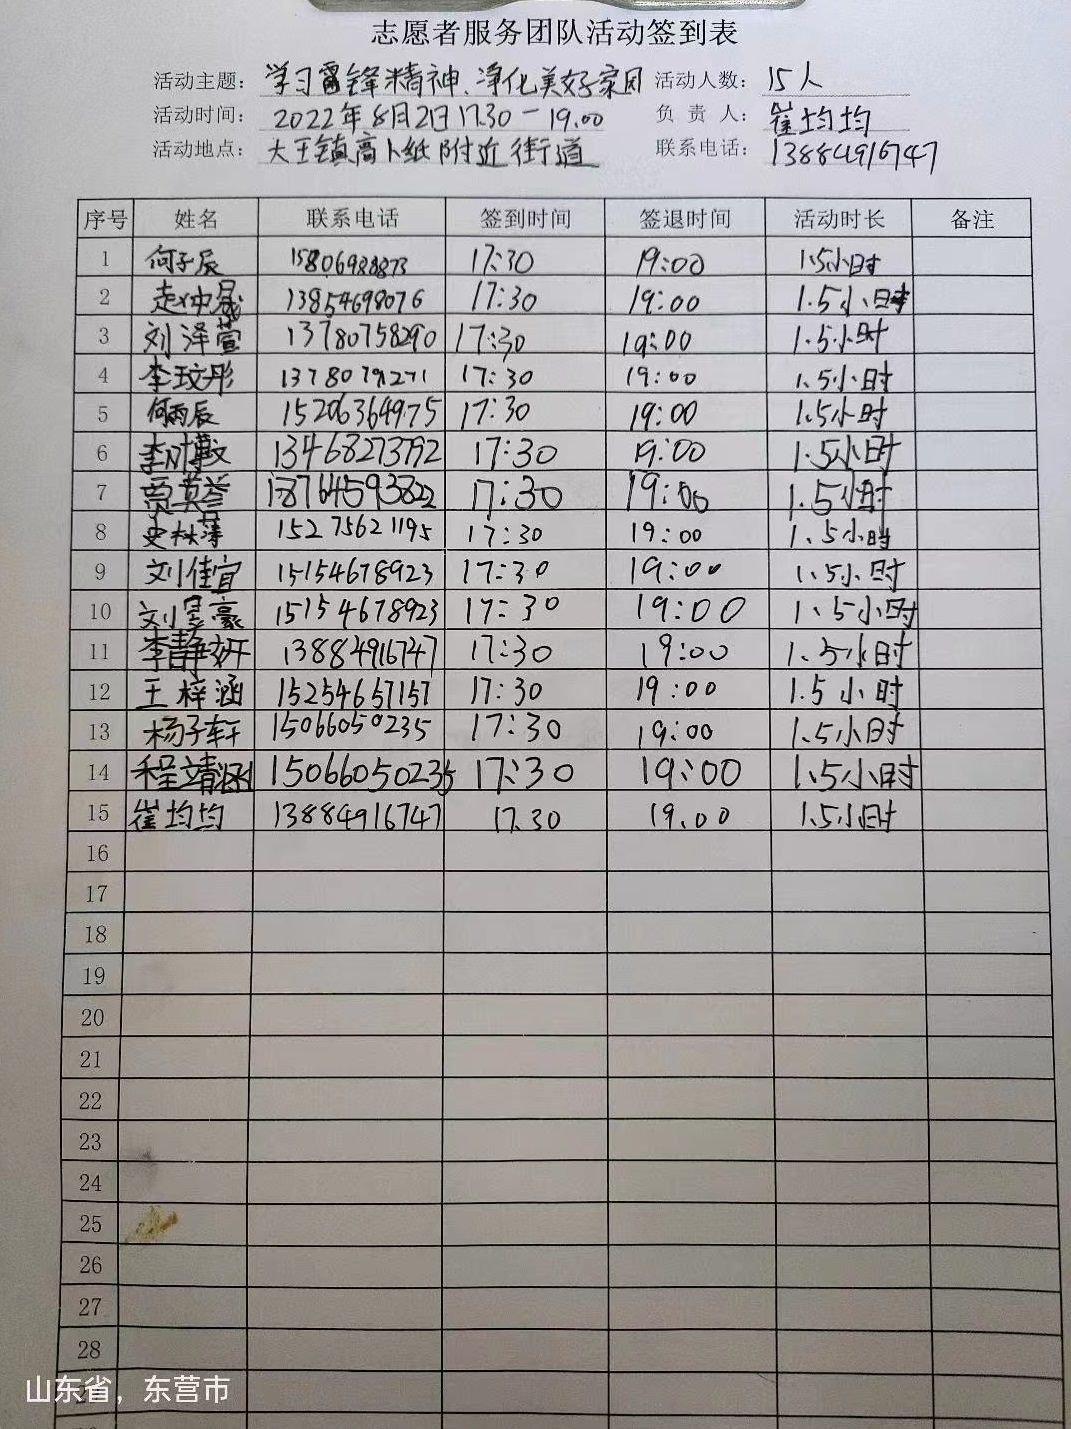 志愿者服务团队活动签到表
活动主题: 学习雷锋精神、净化美好家园 活动人数: 15人
活动时间: 2022年8月2日17.30-19.00 负责人: 崔均均
活动地点: 大王镇高卜纸附近街道 联系电话: 13884916747
序号 姓名 联系电话 签到时间 签退时间 活动时长 备注
1 何子辰 15806988873 17:30 19:00 1.5小时
2 13854698076 17:30 19:00 1.5小时
3 刘泽萱 13780758290 17:30 19:00 1.5小时
4 李玟彤 17:30 19:00 1.5小时
5 何雨辰 15206364975 17:30 19:00 1.5小时
6 13468273792 17:30 19:00 1.5小时
7 18764593822 17:30 19:00 1.5小时
8 15275621195 17:30 19:00 1.5小时
9 刘佳宜 15154678923 17:30 19:00 1.5小时
10 刘昱豪 15154678923 17:30 19:00 1.5小时
11 李静妍 13884916747 17:30 19:00 1.5小时
12 王梓涵 15254657157 17:30 19:00 1.5小时
13 杨子轩 15066050235 17:30 19:00 1.5小时
14 程靖涵 15066050235 17:30 19:00 1.5小时
15 崔均均 13884916747 17.30 19.00 1.5小时
16
17
18
19
20
21
22
23
24
25
26
27
28
山东省，东营市